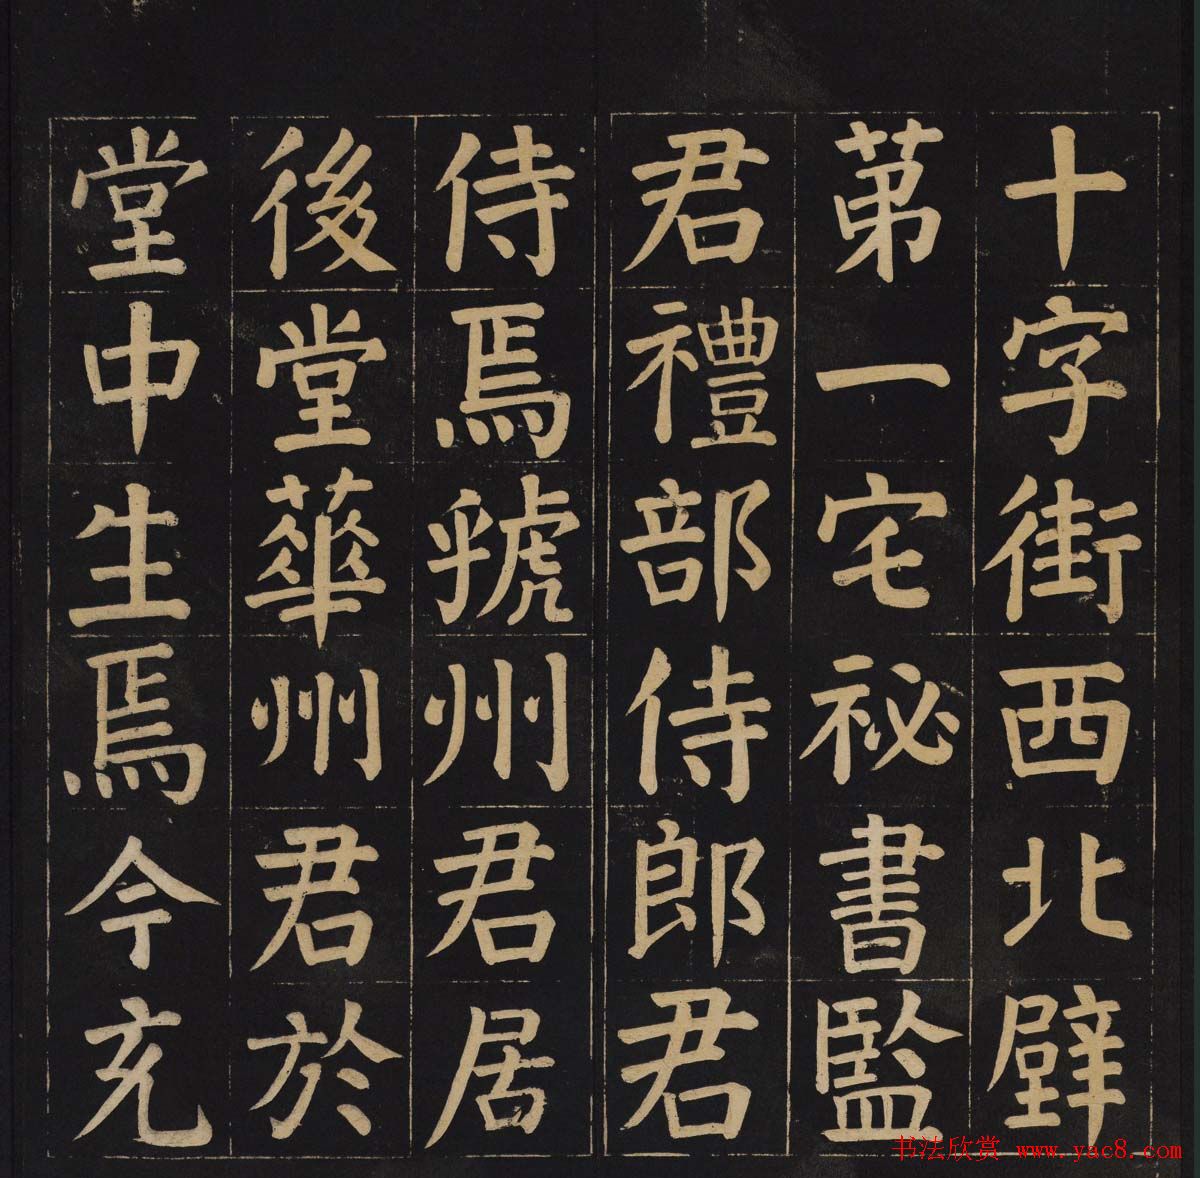 十字街西北壁
苐一宅祕書監
君禮部侍郎君
侍焉虢州君居
後堂華州君於
堂中生焉今充
书法欣赏 www.yac8.com